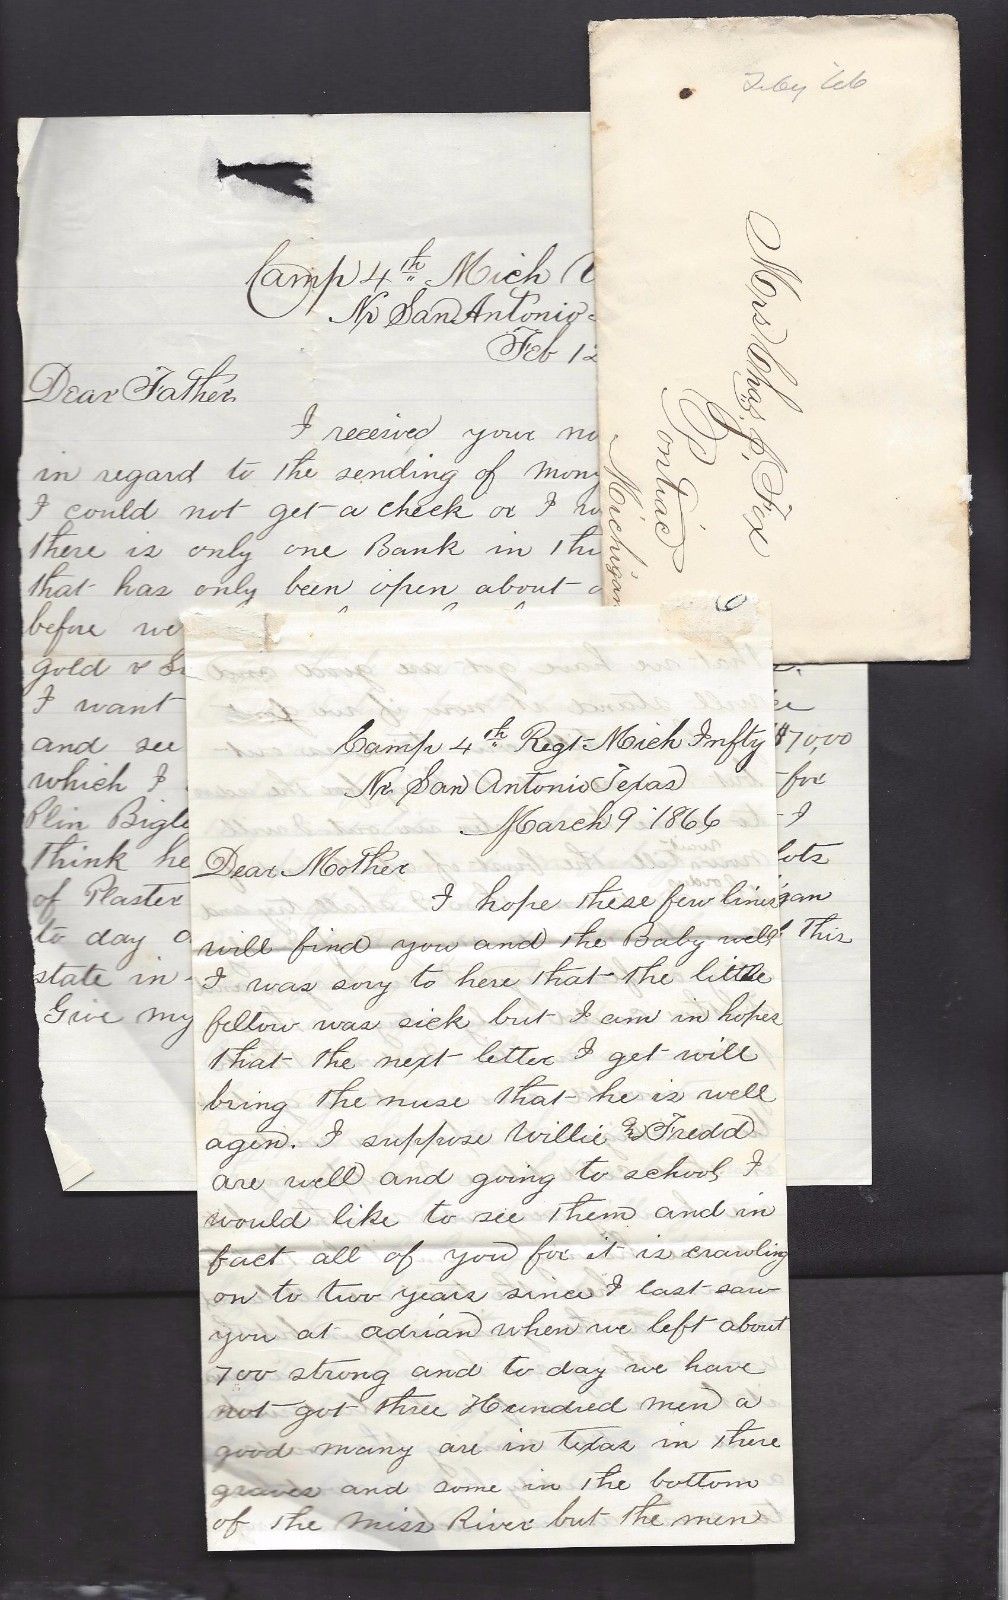 Feby '66
Mrs Chas. J. Fox
Pontiac
Michigan
Camp 4th Mich
Nr San Antonio
Feb 12
Dear Father
I received your
in regard to the sending of
I could not get a check or I
there is only one Bank in
that has only been open about
before we
gold &
I want
and see $7000
which I for
Plin I
think he lots
of Plaster
to day this
state in
Give my
Camp 4th Regt Mich Infty
Nr San Antonio Texas
March 9 1866
Dear Mother
I hope these few lines
will find you and the Baby well
I was sory to here that the little
fellow was sick but I am in hopes
that the next letter I get will
bring the nuse that he is well
agen. I suppose Willie & Fredd
are well and going to school I
would like to see them and in
fact all of you for it is crawling
on to two years since I last saw
you at adrian when we left about
700 strong and to day we have
not got three Hundred men a
good many are in texas in there
graves and some in the bottom
of the Miss River but the men